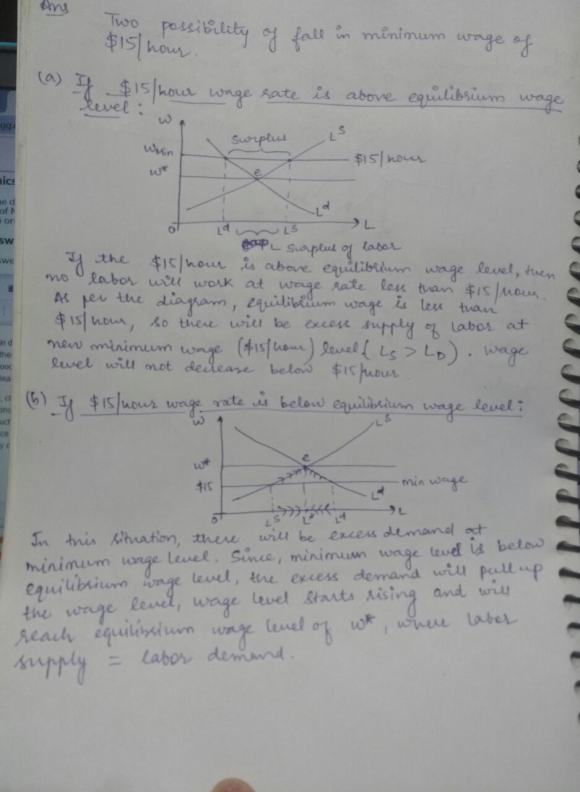 Ans
Two possibility of fall in minimum wage of
$15/hour.
(a) If $15/hour wage rate is above equilibrium wage
level:
W
Surplus
Lˢ
Wmin
$15/hour
W*
e
Lᵈ
O
Lᵈ
Lˢ
L
L surplus of labor
If the $15/hour is above equilibrium wage level, then
no labor will work at wage rate less than $15/hour.
As per the diagram, equilibrium wage is less than
$15/hour, so there will be excess supply of labor at
new minimum wage ($15/hour) level ( LS > LD ). Wage
level will not decrease below $15/hour
(b) If $15/hour wage rate is below equilibrium wage level:
W
Lˢ
e
W*
$15
min wage
Lᵈ
O
Lˢ
L*
Lᵈ
L
In this situation, there will be excess demand at
minimum wage level. Since, minimum wage level is below
equilibrium wage level, the excess demand will pull up
the wage level, wage level starts rising and will
reach equilibrium wage level of W*, where labor
supply = labor demand.